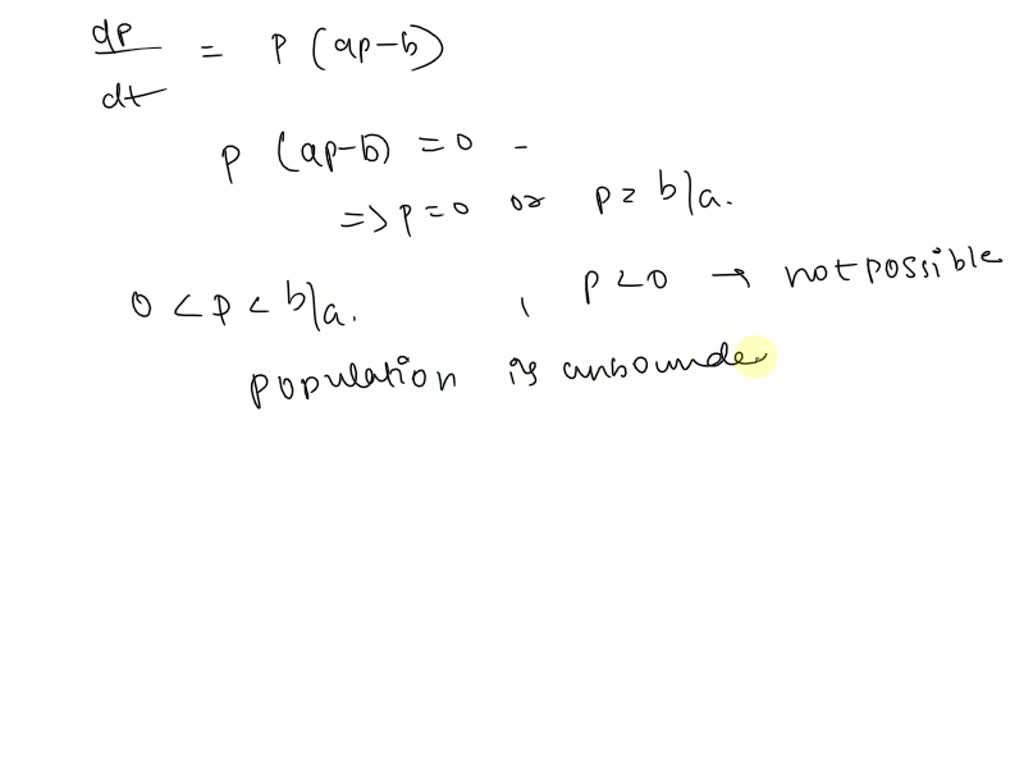 dp/dt = P (ap-b)
P (ap-b) = 0 -
=> P = 0 or P = b/a.
0 < P < b/a. , P < 0 → not possible
population is unbounde